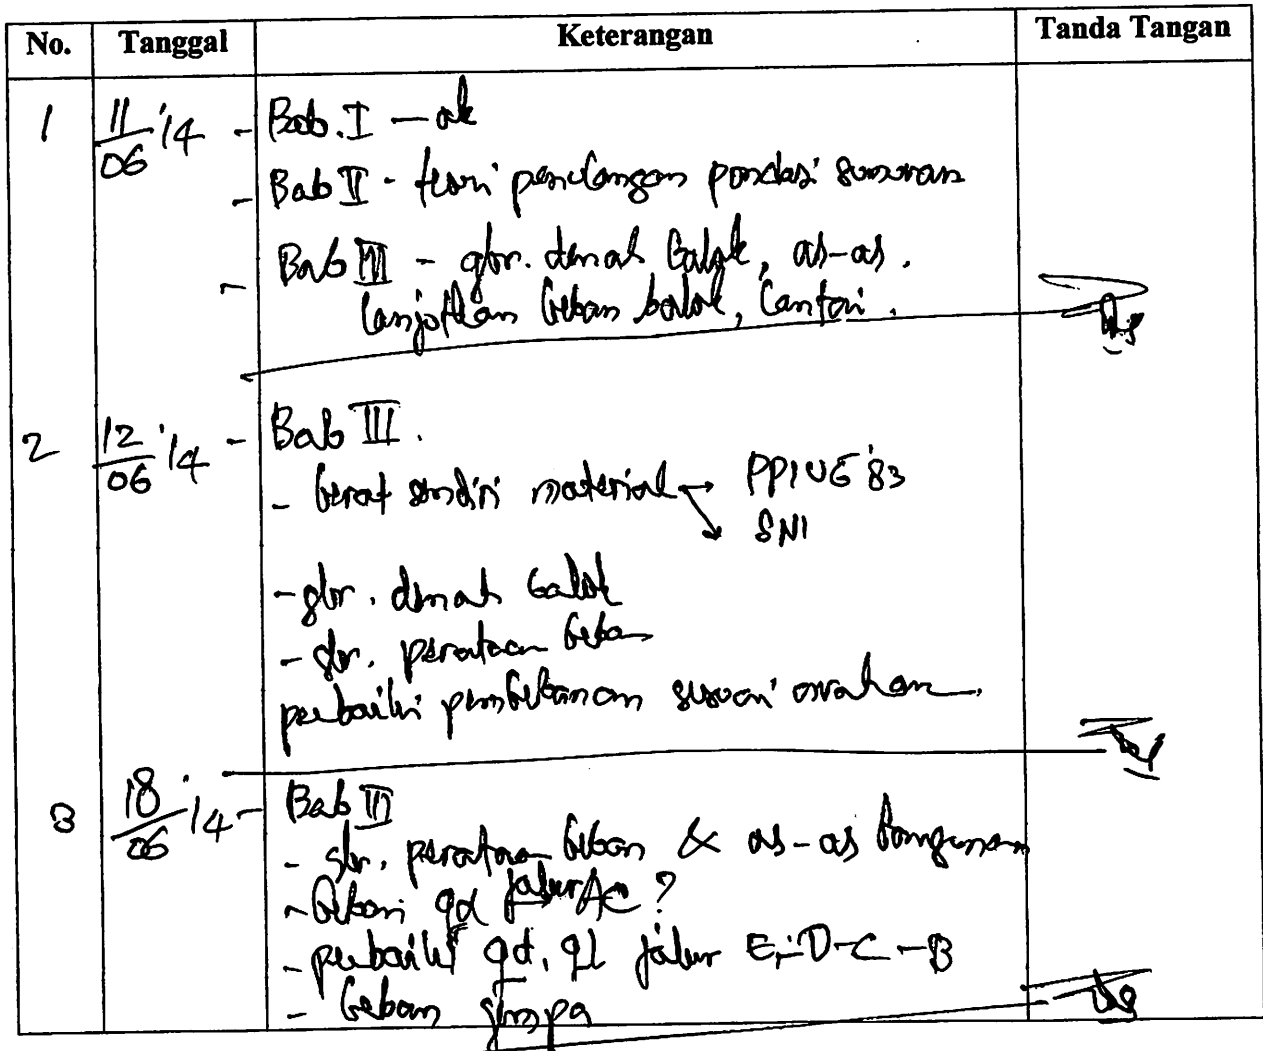 No. Tanggal Keterangan Tanda Tangan
1 11/06 '14 - Bab. I - ok
- Bab II - teori penulangan pondasi sumuran
- Bab III - gbr. denah balok, as-as.
lanjutkan beban balok, lantai.
2 12/06 '14 - Bab III.
- berat sendiri material → PPIUG '83
↘ SNI
- gbr. denah balok
- gbr. perataan beban
perbaiki pembebanan sesuai arahan.
3 18/06 '14 - Bab III
- gbr. perataan beban & as-as bangunan
- beban qd jalur AC ?
- perbaiki qd, ql jalur E-D-C-B
- beban gempa